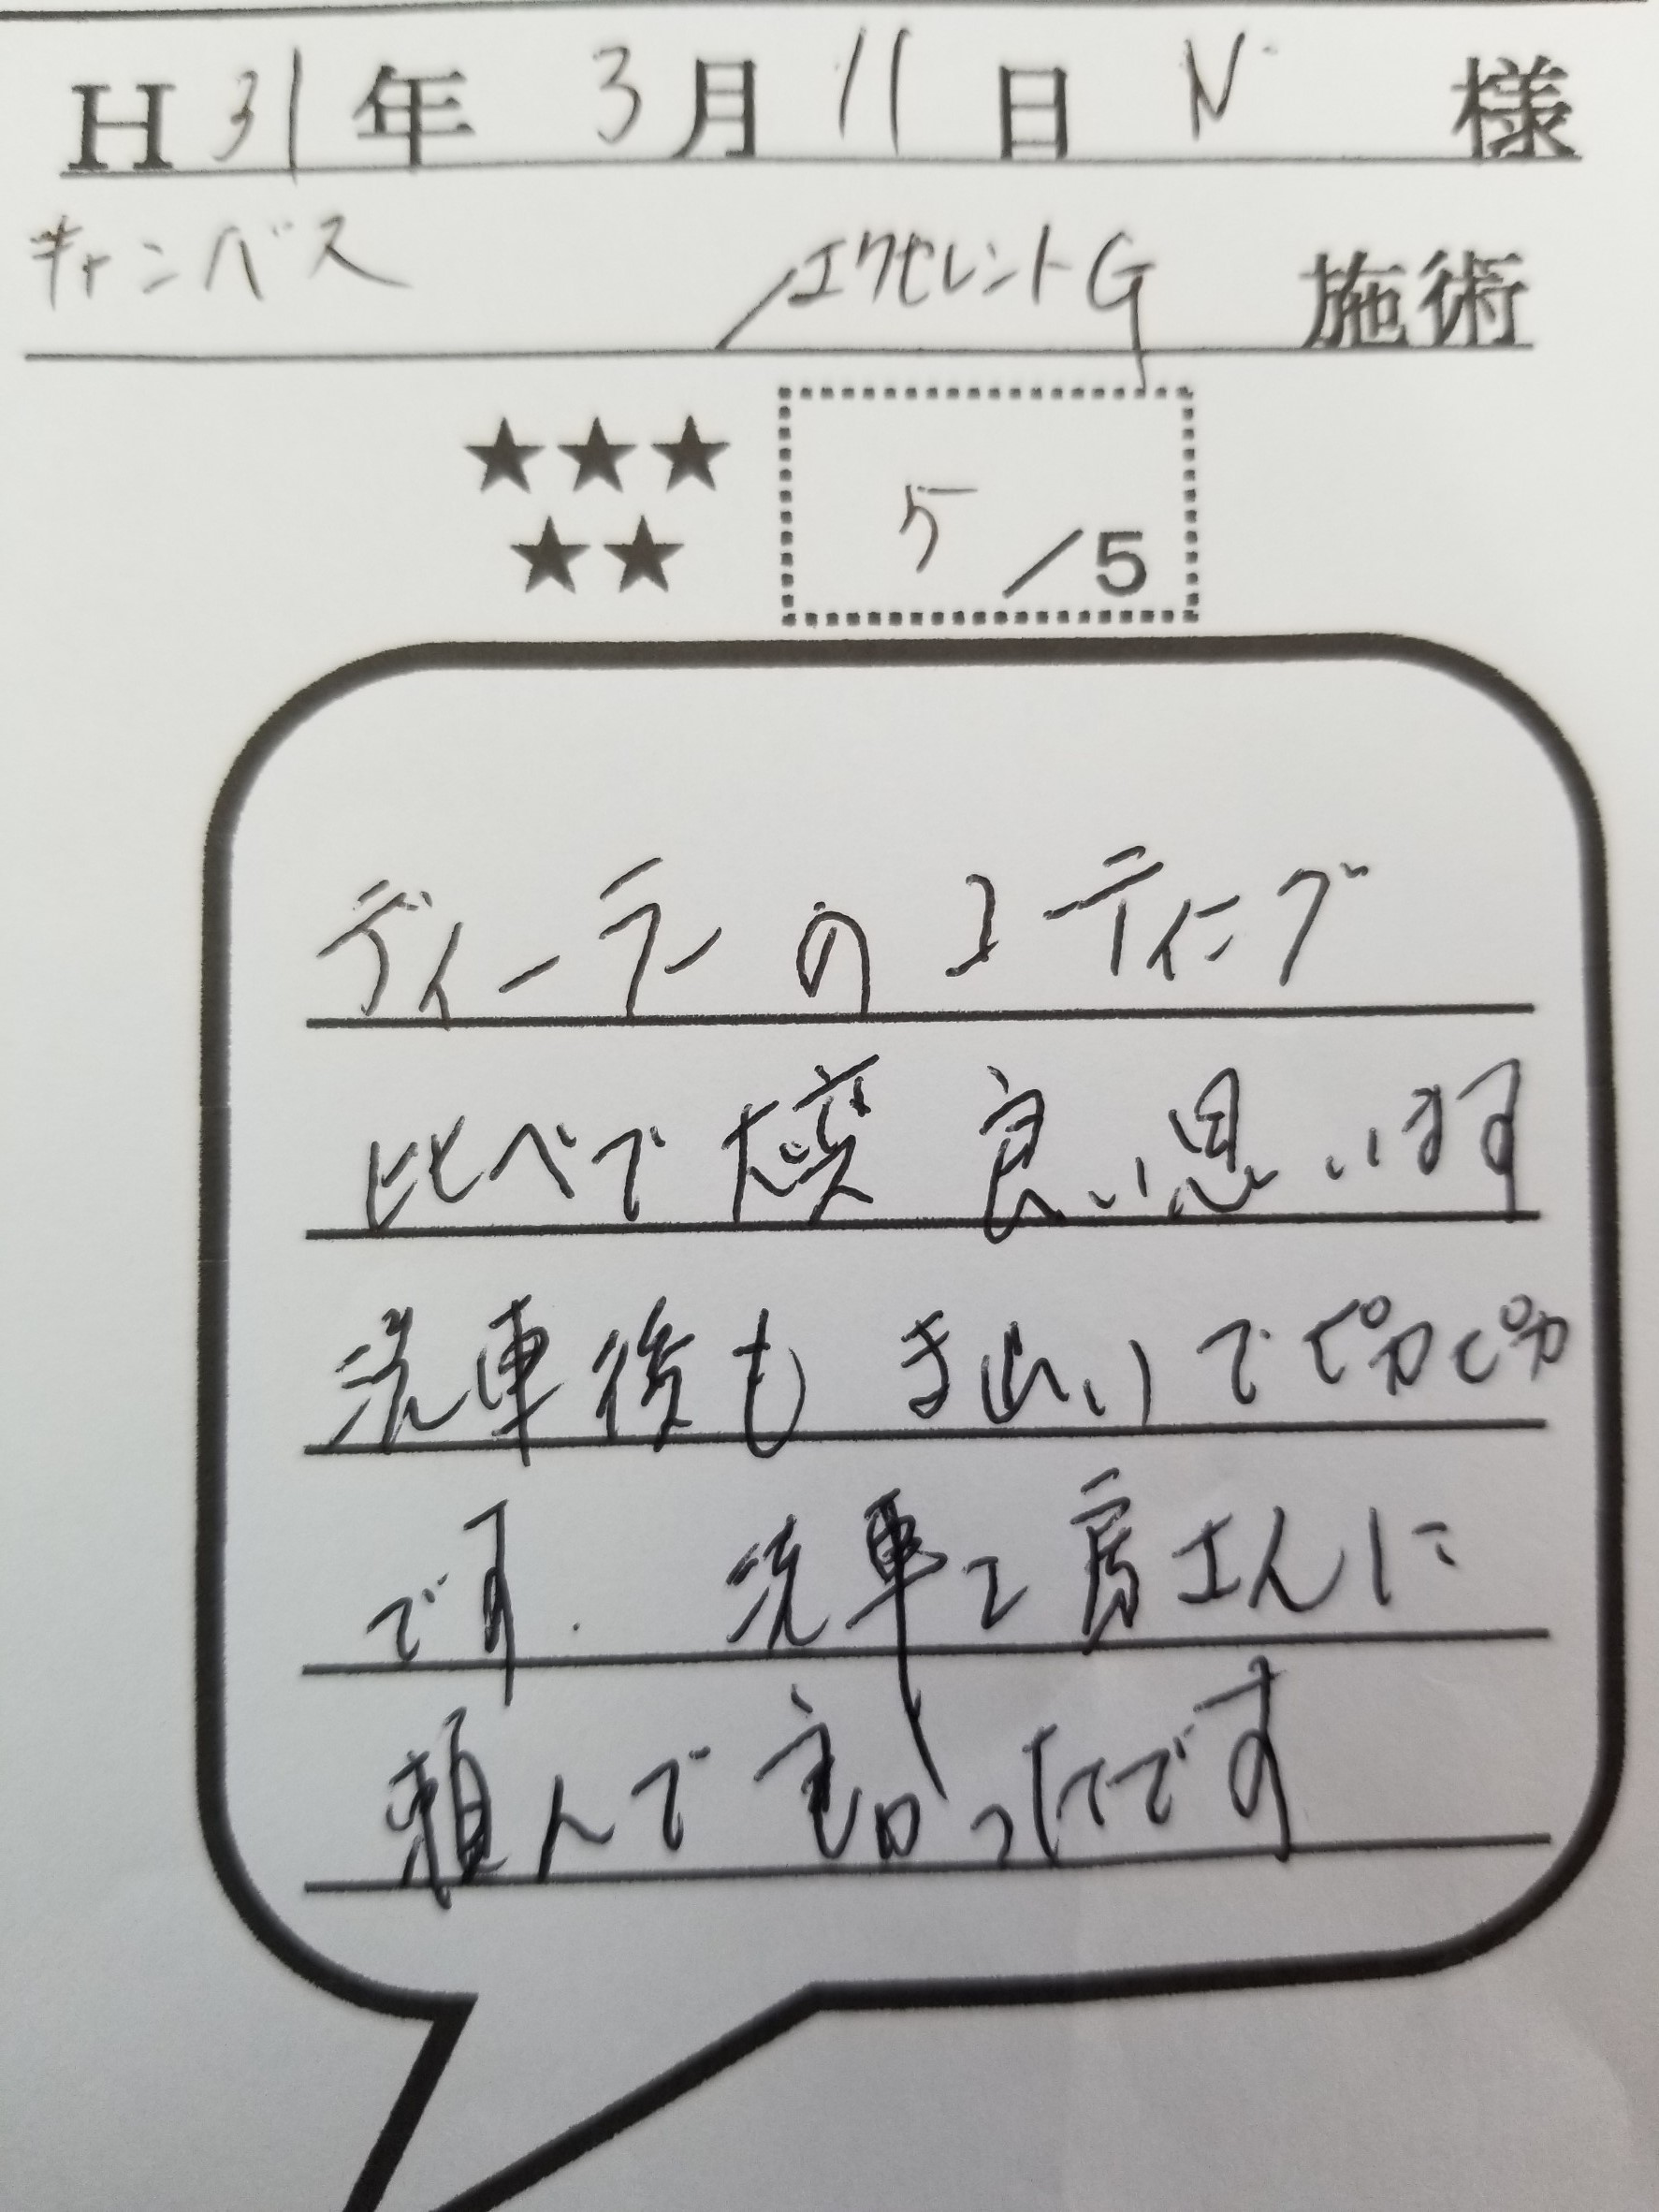 H31年 3月 11日 N 様
キャンバス /エクセレントG 施術
★★★
★★
5/5
ディーラーのコーティング
比べで大変 良い思います
洗車後も きれいで ピカピカ
です. 洗車工房さんに
頼んで良かったです